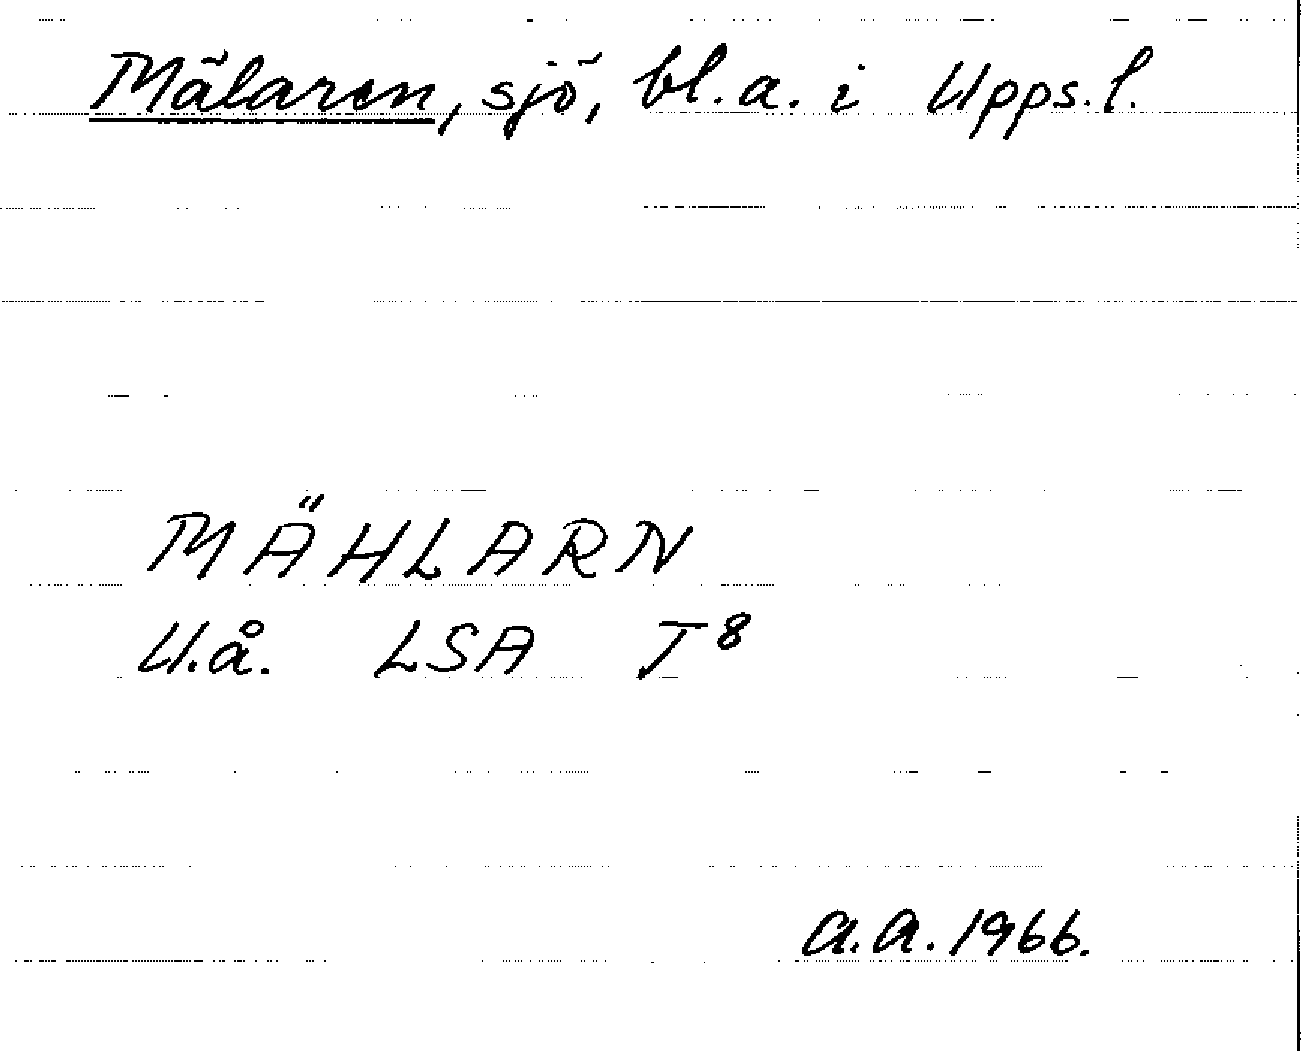 Mälaren, sjö, bl.a. i Upps.l.
MÄHLARN
U.å. LSA T⁸
A.A. 1966.